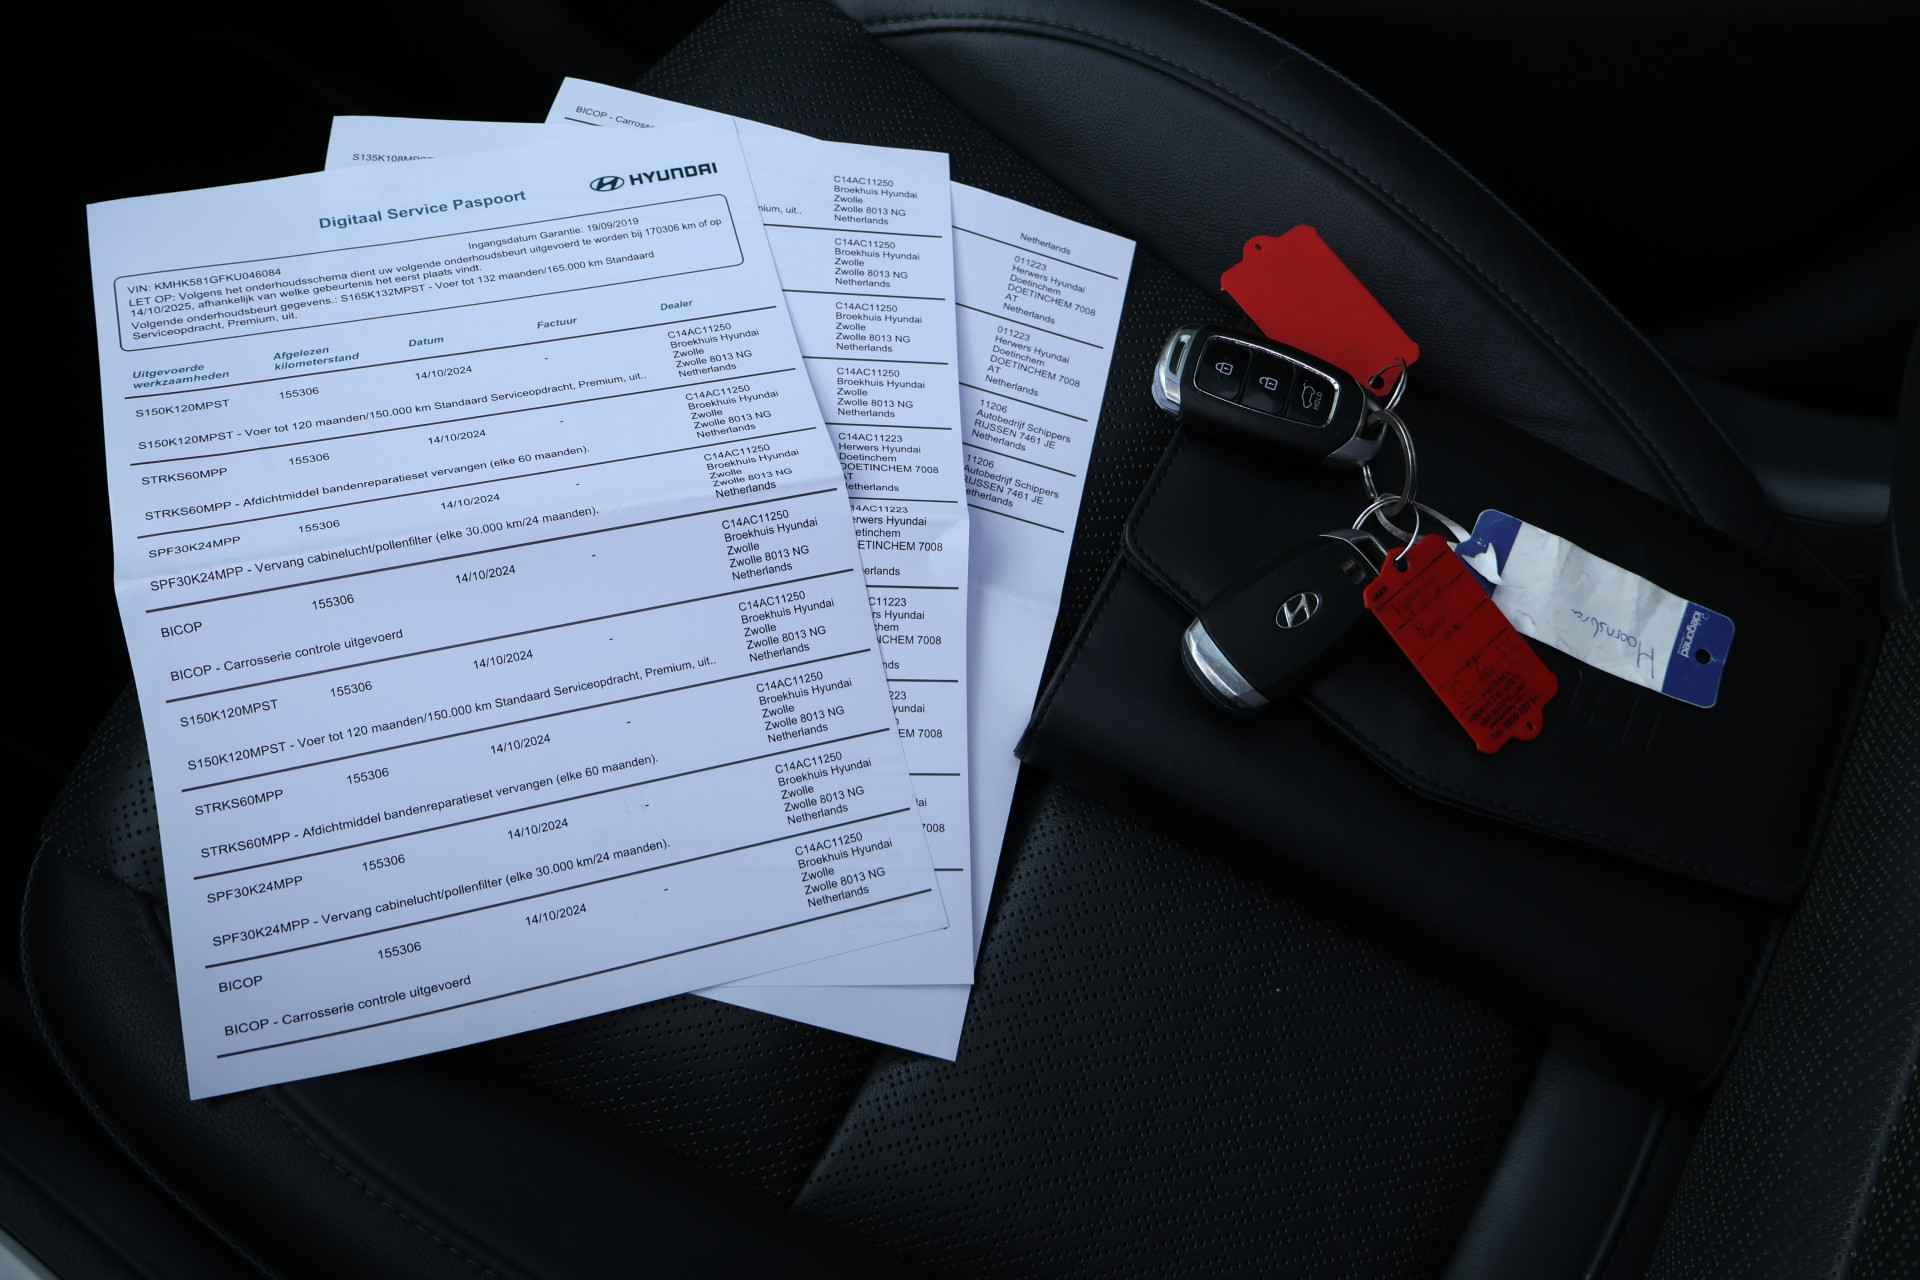 HYUNDAI
Digitaal Service Paspoort
Ingangsdatum Garantie: 19/09/2019
VIN: KMHK581GFKU046084
LET OP: Volgens het onderhoudsschema dient uw volgende onderhoudsbeurt uitgevoerd te worden bij 170306 km of op
14/10/2025, afhankelijk van welke gebeurtenis het eerst plaats vindt.
Volgende onderhoudsbeurt gegevens.: S165K132MPST - Voer tot 132 maanden/165.000 km Standaard
Serviceopdracht, Premium, uit.
Uitgevoerde werkzaamheden
Afgelezen kilometerstand
Datum
Factuur
Dealer
S150K120MPST 155306 14/10/2024 - C14AC11250
Broekhuis Hyundai
Zwolle
Zwolle 8013 NG
Netherlands
S150K120MPST - Voer tot 120 maanden/150.000 km Standaard Serviceopdracht, Premium, uit..
STRKS60MPP 155306 14/10/2024 - C14AC11250
Broekhuis Hyundai
Zwolle
Zwolle 8013 NG
Netherlands
STRKS60MPP - Afdichtmiddel bandenreparatieset vervangen (elke 60 maanden).
SPF30K24MPP 155306 14/10/2024 - C14AC11250
Broekhuis Hyundai
Zwolle
Zwolle 8013 NG
Netherlands
SPF30K24MPP - Vervang cabinelucht/pollenfilter (elke 30.000 km/24 maanden).
BICOP 155306 14/10/2024 - C14AC11250
Broekhuis Hyundai
Zwolle
Zwolle 8013 NG
Netherlands
BICOP - Carrosserie controle uitgevoerd
S150K120MPST 155306 14/10/2024 - C14AC11250
Broekhuis Hyundai
Zwolle
Zwolle 8013 NG
Netherlands
S150K120MPST - Voer tot 120 maanden/150.000 km Standaard Serviceopdracht, Premium, uit..
STRKS60MPP 155306 14/10/2024 - C14AC11250
Broekhuis Hyundai
Zwolle
Zwolle 8013 NG
Netherlands
STRKS60MPP - Afdichtmiddel bandenreparatieset vervangen (elke 60 maanden).
SPF30K24MPP 155306 14/10/2024 - C14AC11250
Broekhuis Hyundai
Zwolle
Zwolle 8013 NG
Netherlands
SPF30K24MPP - Vervang cabinelucht/pollenfilter (elke 30.000 km/24 maanden).
BICOP 155306 14/10/2024 - C14AC11250
Broekhuis Hyundai
Zwolle
Zwolle 8013 NG
Netherlands
BICOP - Carrosserie controle uitgevoerd
C14AC11250
Broekhuis Hyundai
Zwolle
Zwolle 8013 NG
Netherlands
uit..
C14AC11250
Broekhuis Hyundai
Zwolle
Zwolle 8013 NG
Netherlands
C14AC11250
Broekhuis Hyundai
Zwolle
Zwolle 8013 NG
Netherlands
C14AC11250
Broekhuis Hyundai
Zwolle
Zwolle 8013 NG
Netherlands
C14AC11223
Herwers Hyundai
Doetinchem
DOETINCHEM 7008
AT
Netherlands
Hyundai
7008
7008
7008
7008
BICOP -
Netherlands
011223
Herwers Hyundai
Doetinchem
DOETINCHEM 7008
AT
Netherlands
011223
Herwers Hyundai
Doetinchem
DOETINCHEM 7008
AT
Netherlands
11206
Autobedrijf Schippers
RIJSSEN 7461 JE
Netherlands
11206
Autobedrijf Schippers
RIJSSEN 7461 JE
Netherlands
HOLD